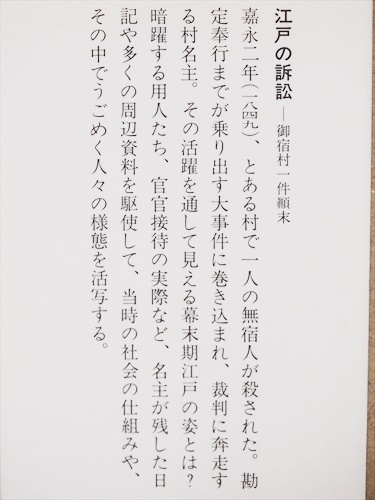 江戸の訴訟―御宿村一件顚末
嘉永二年(一八四九)、とある村で一人の無宿人が殺された。勘
定奉行までが乗り出す大事件に巻き込まれ、裁判に奔走す
る村名主。その活躍を通して見える幕末期江戸の姿とは？
暗躍する用人たち、官官接待の実際など、名主が残した日
記や多くの周辺資料を駆使して、当時の社会の仕組みや、
その中でうごめく人々の様態を活写する。